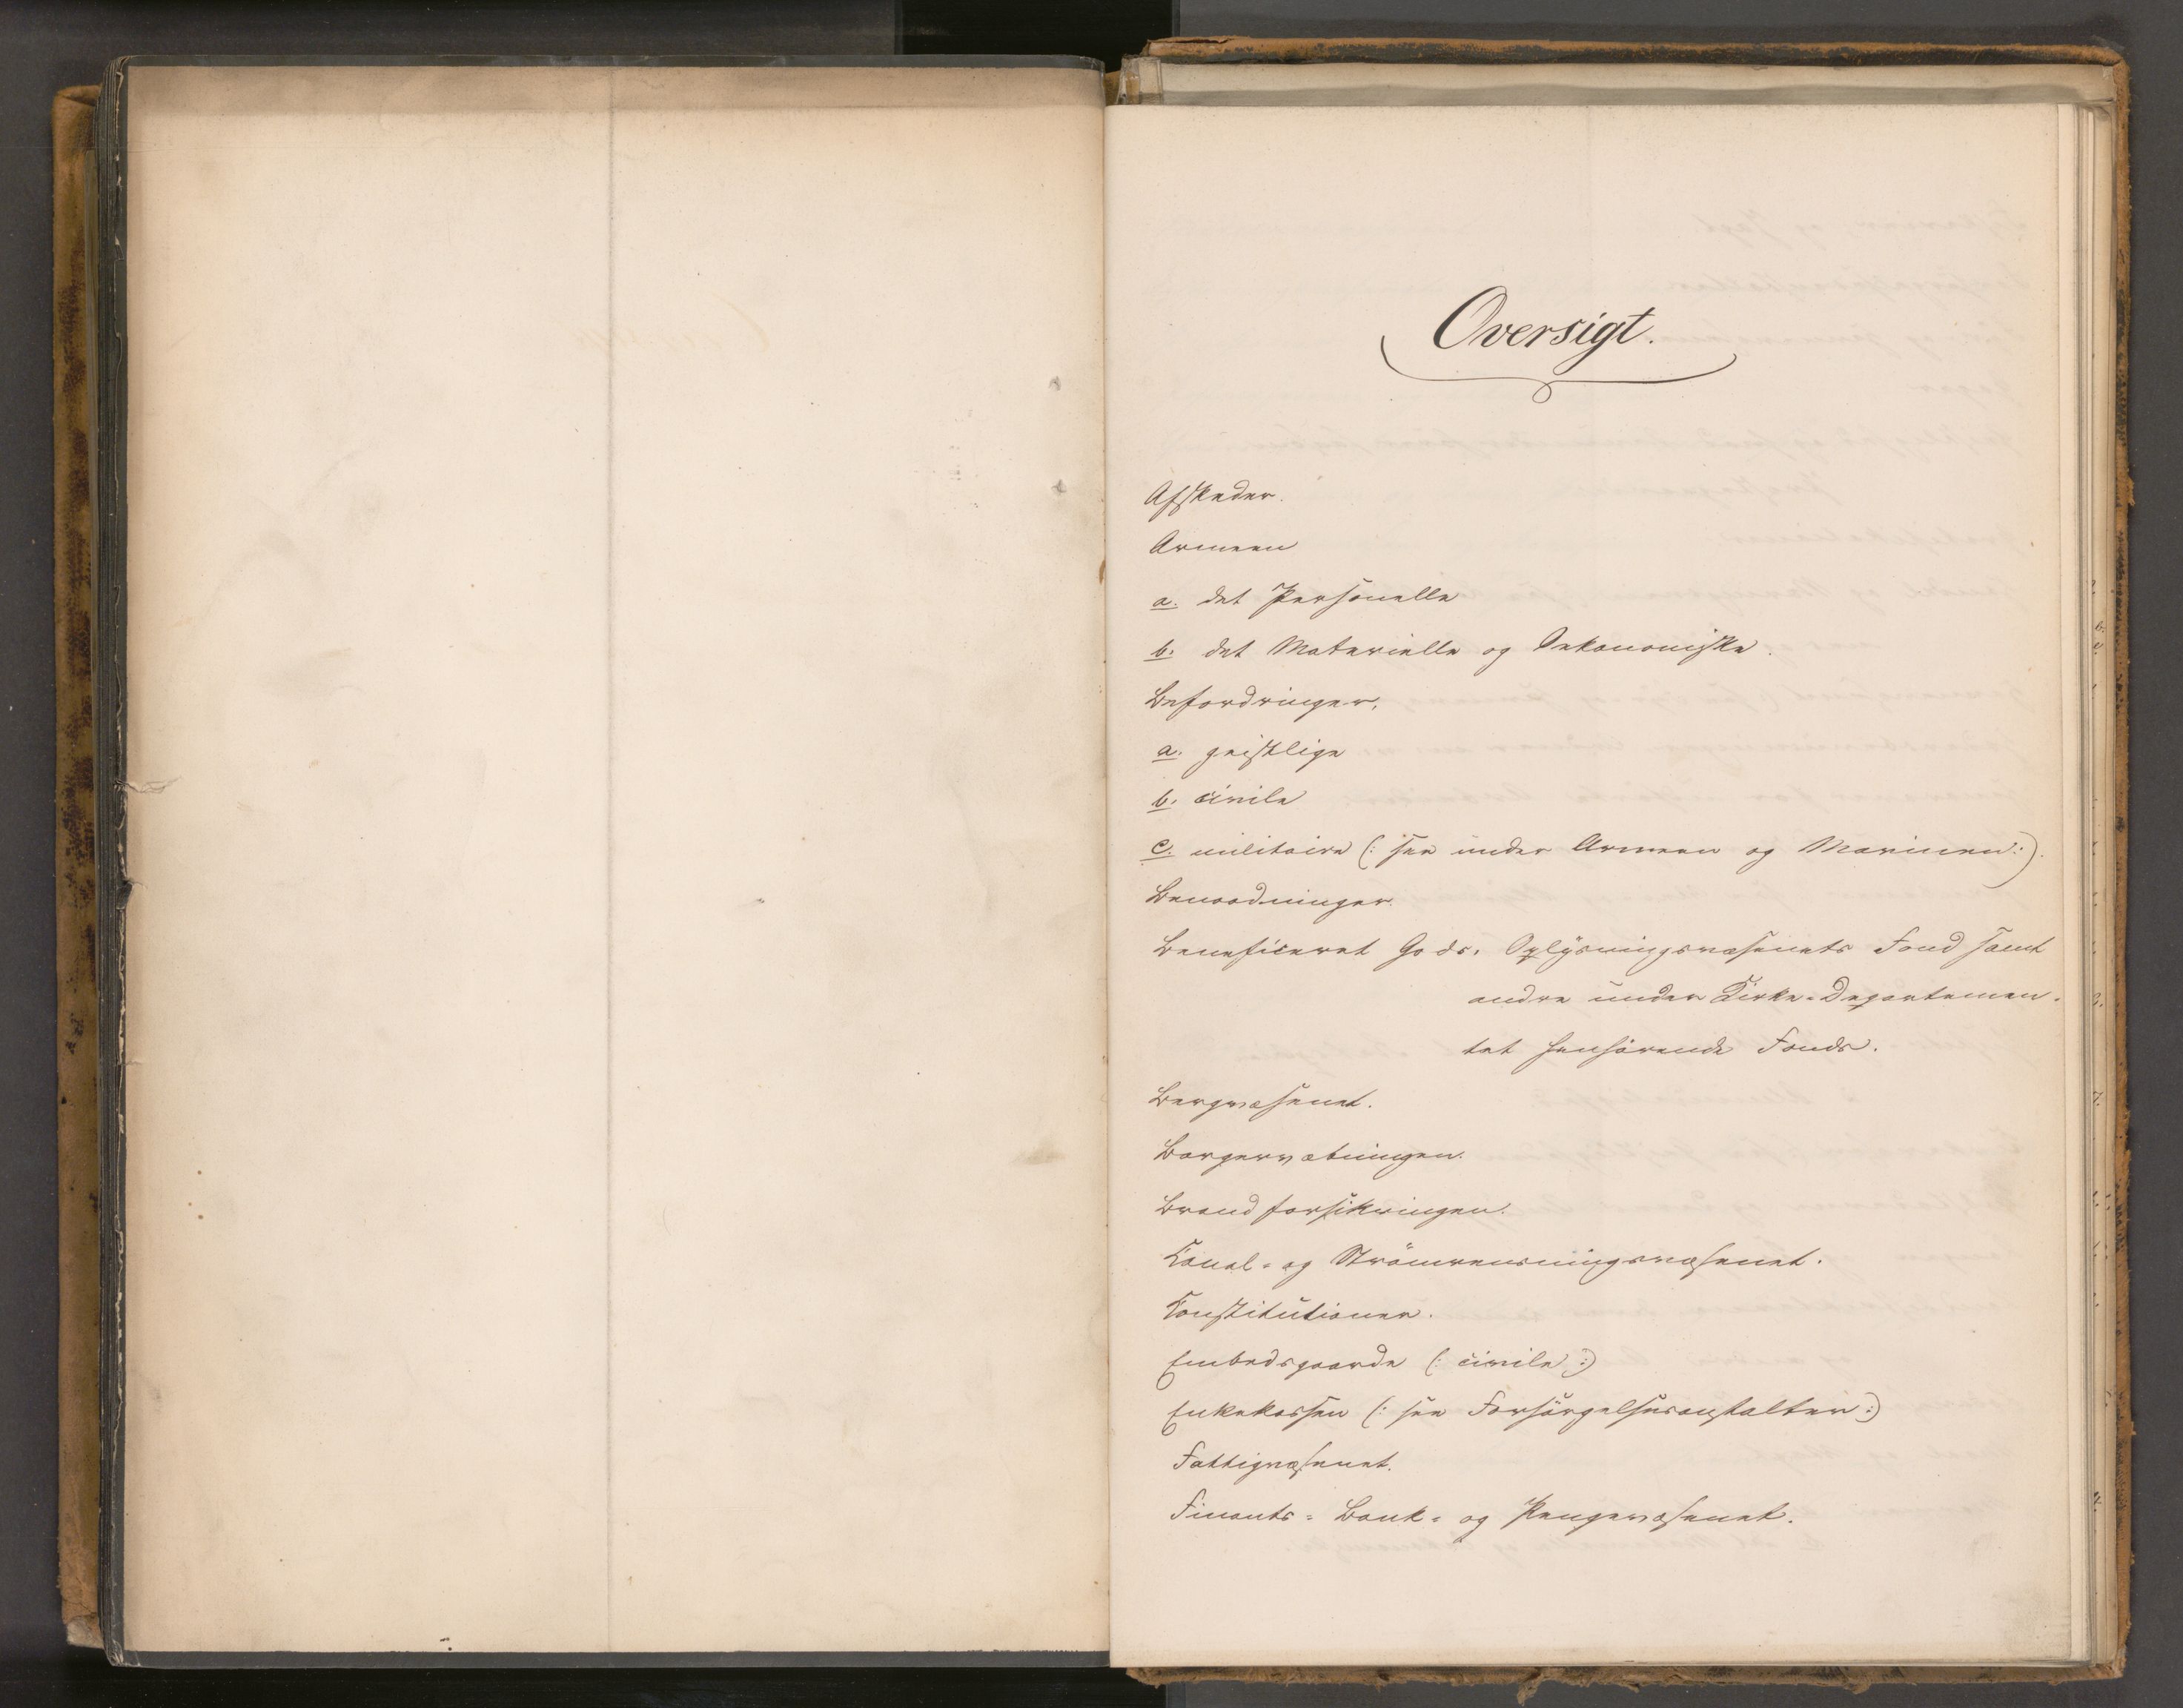 Oversigt.
Afskeder.
Armeen
a. det Personelle
b. det Materielle og Oekonomiske.
Befordringer,
a. geistlige
b. civile
c. militaire (: see under Armeen og Marinen:).
Benaadninger.
Beneficeret Gods, Oplysningsvæsenets Fond samt
andre under Kirke-Departemen-
tet henhörende Fonds.
Bergvæsenet.
Borgervæbningen.
Brandforsikringen.
Canal- og Strömrensningsvæsenet.
Constitutioner.
Embedsgaarde (: civile :)
Enkekassen (: see Forsörgelsesanstalter :)
Fattigvæsenet.
Finants- Bank- og Pengevæsenet.